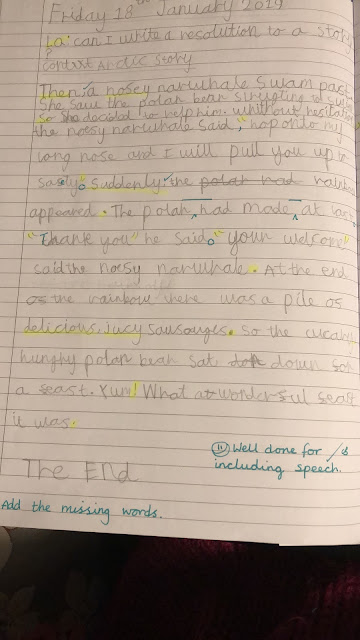 Friday 18th January 2019
Lo: can I write a resolution to a story
?
context Arctic Story
Then, a nosey narwhale swam past
She saw the polar bear strugling to swim
so she decided to help him. without hesitation
the noesy narwhale said, "hop onto my
long nose and I will pull you up to
safely." Suddenly, the polar had rainbow
appeared. The polar, had made ^ at last
"Thank you" he said. "your welcome"
said the noesy narwhale. At the end
of the rainbow there was a pile of
delicious, jucy sausouges. So the
hunghy polar bear sat down for
a feast. Yum! What a wonderful feast
it was.
11 Well done for
including speech.
The End
Add the missing words.